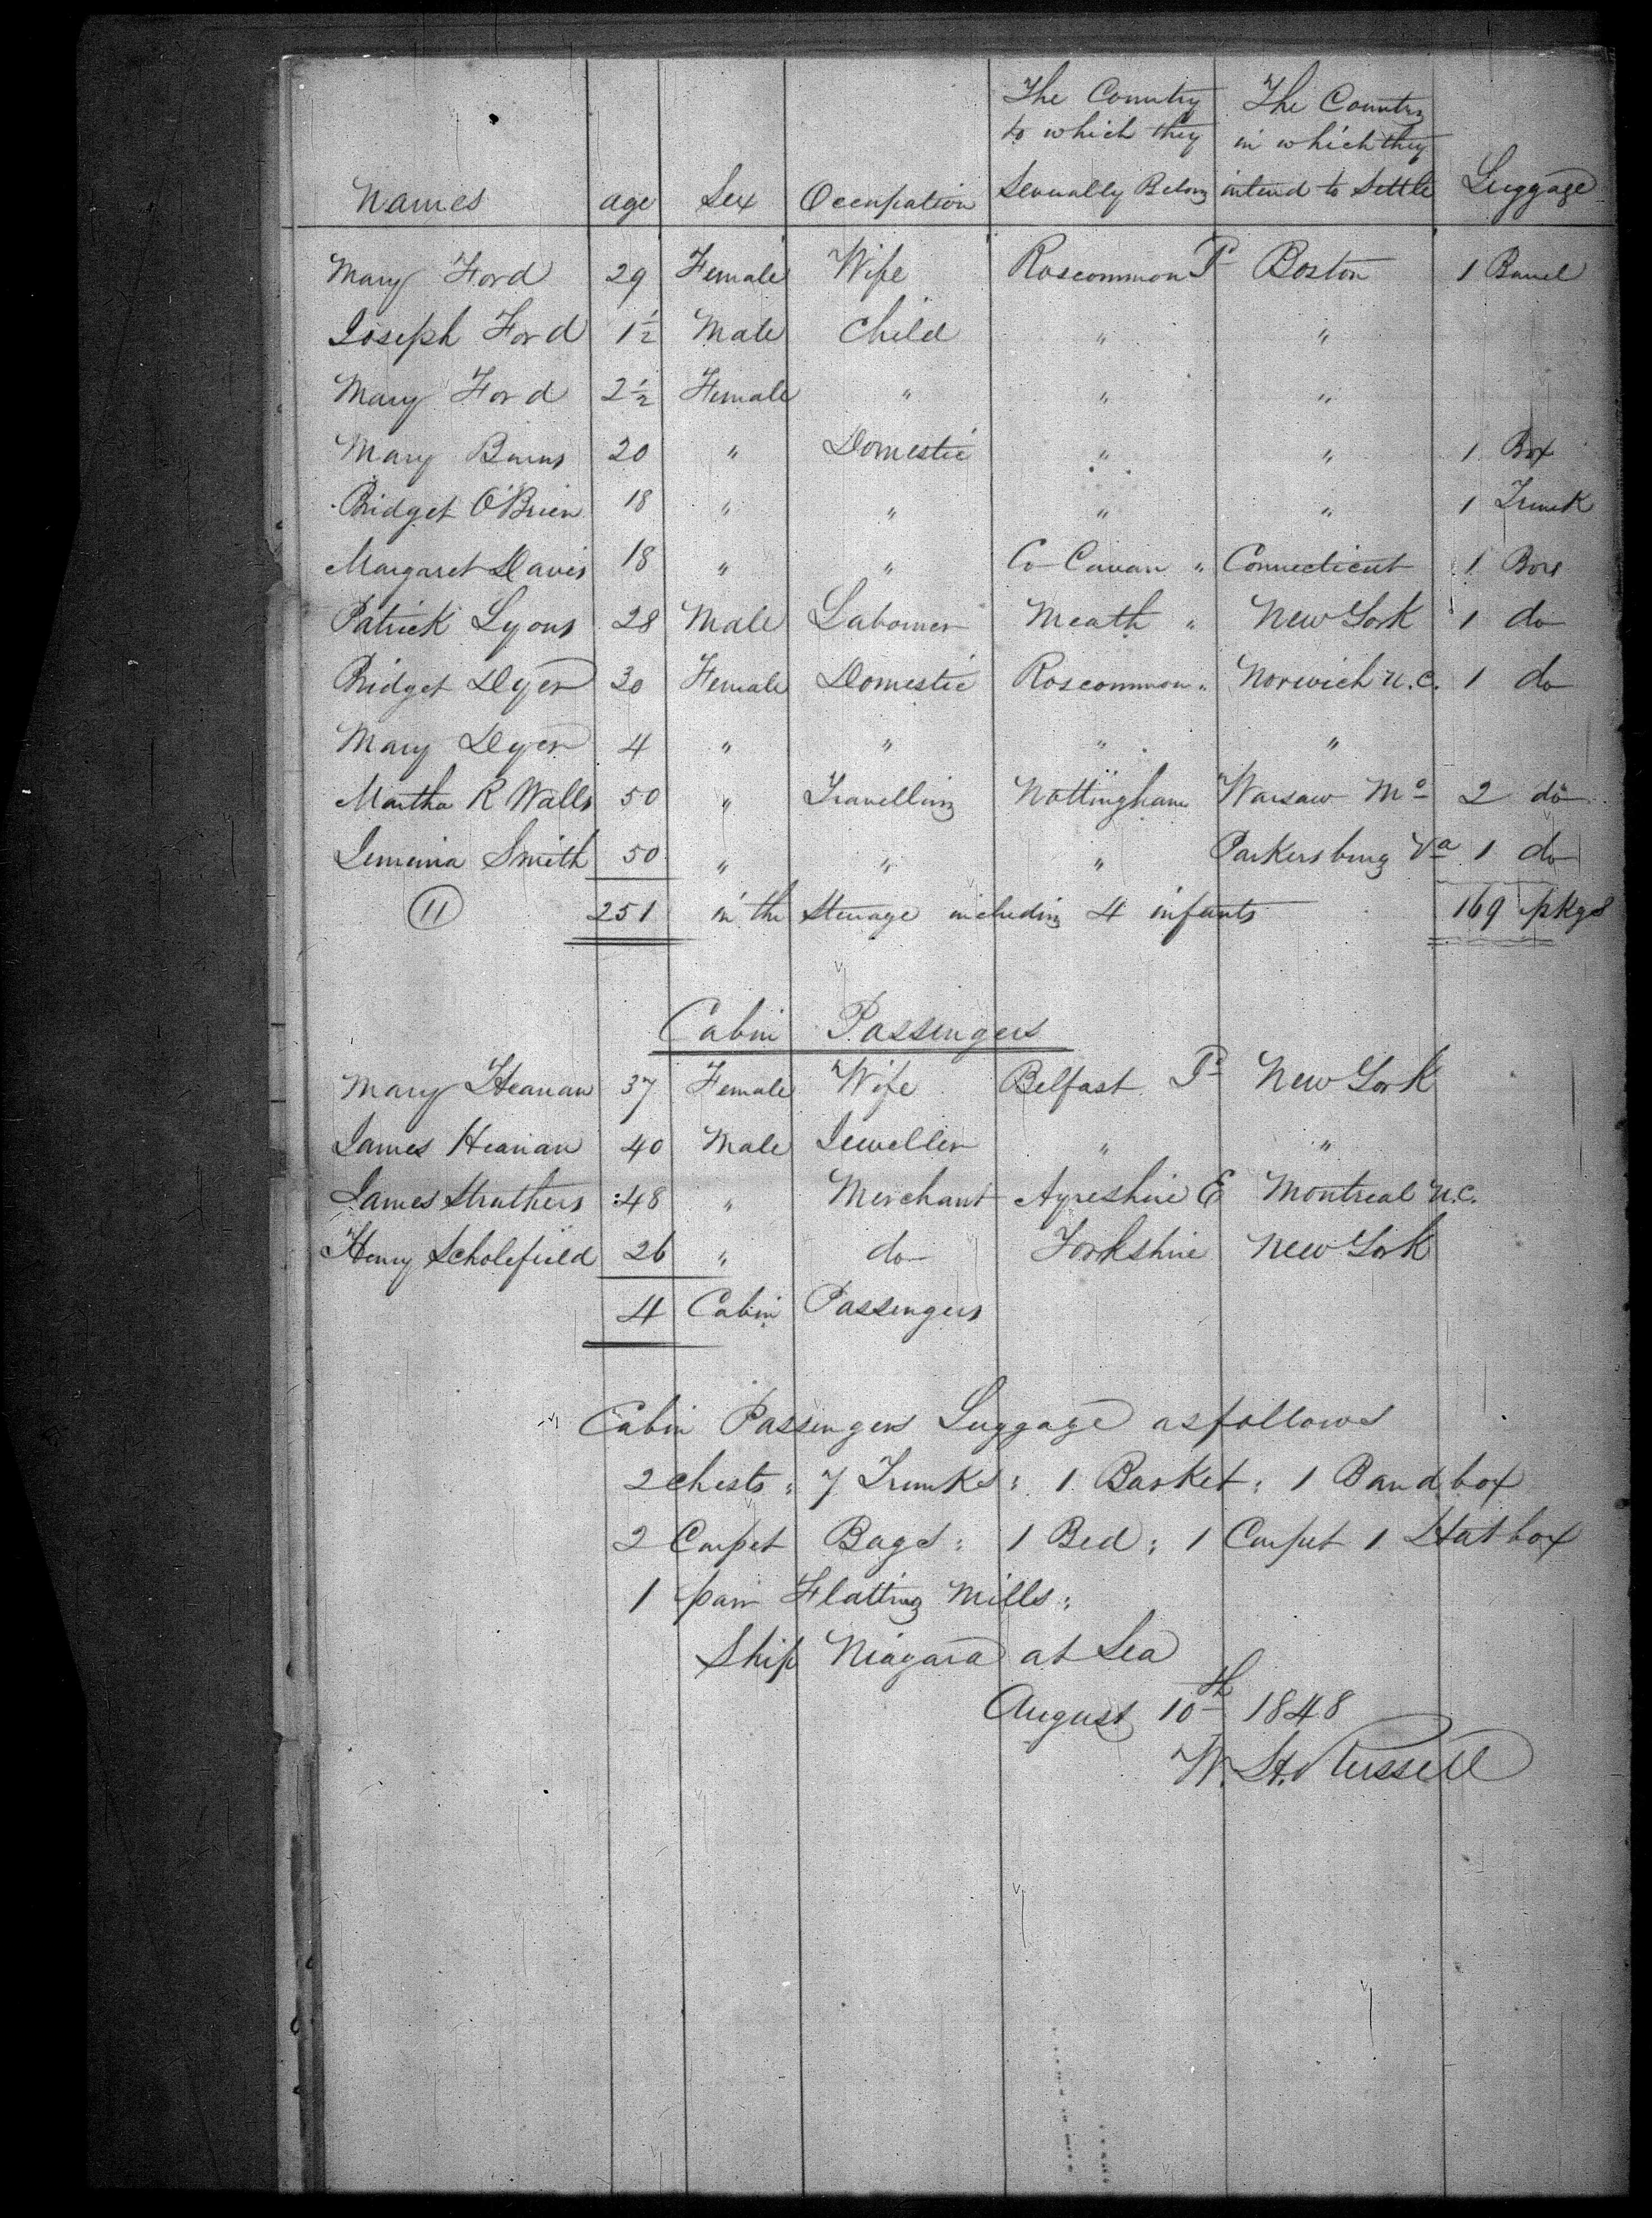 The Country The Country
to which they in which they
Names age Sex Occupation Severally Belong intend to Settle Luggage
Mary Ford 29 Female Wife Roscommon Boston 1 Barrel
Joseph Ford 1½ Male Child " "
Mary Ford 2½ Female " " "
Mary Burns 20 " Domestic " " 1 Box
Bridget O'Brien 18 " " " " 1 Trunk
Margaret Davis 18 " " Co Cavan " Connecticut 1 Box
Patrick Lyons 28 Male Labourer Meath " New York 1 do
Bridget Dyer 30 Female Domestic Roscommon " Norwich U.C. 1 do
Mary Dyer 4 " " " "
Martha R Walls 50 " Travelling Nottingham Warsaw Mo 2 do
Jemima Smith 50 " " " Parkersburg Va 1 do
11 251 in the Steerage including 4 infants 169 pkgs
Cabin Passengers
Mary Heanan 37 Female Wife Belfast New York
James Heanan 40 Male Jeweller " "
James Struthers :48 " Merchant Ayreshire E Montreal U.C.
Henry Scholefield 26 " do Yorkshire New York
4 Cabin Passengers
Cabin Passengers Luggage as follows
2 Chests : 7 Trunks : 1 Basket : 1 Band box
2 Carpet Bags : 1 Bed : 1 Carpet 1 Hat box
1 pair Flatting Mills :
Ship Niagara at Sea
August 10th 1848
W. H. Russell